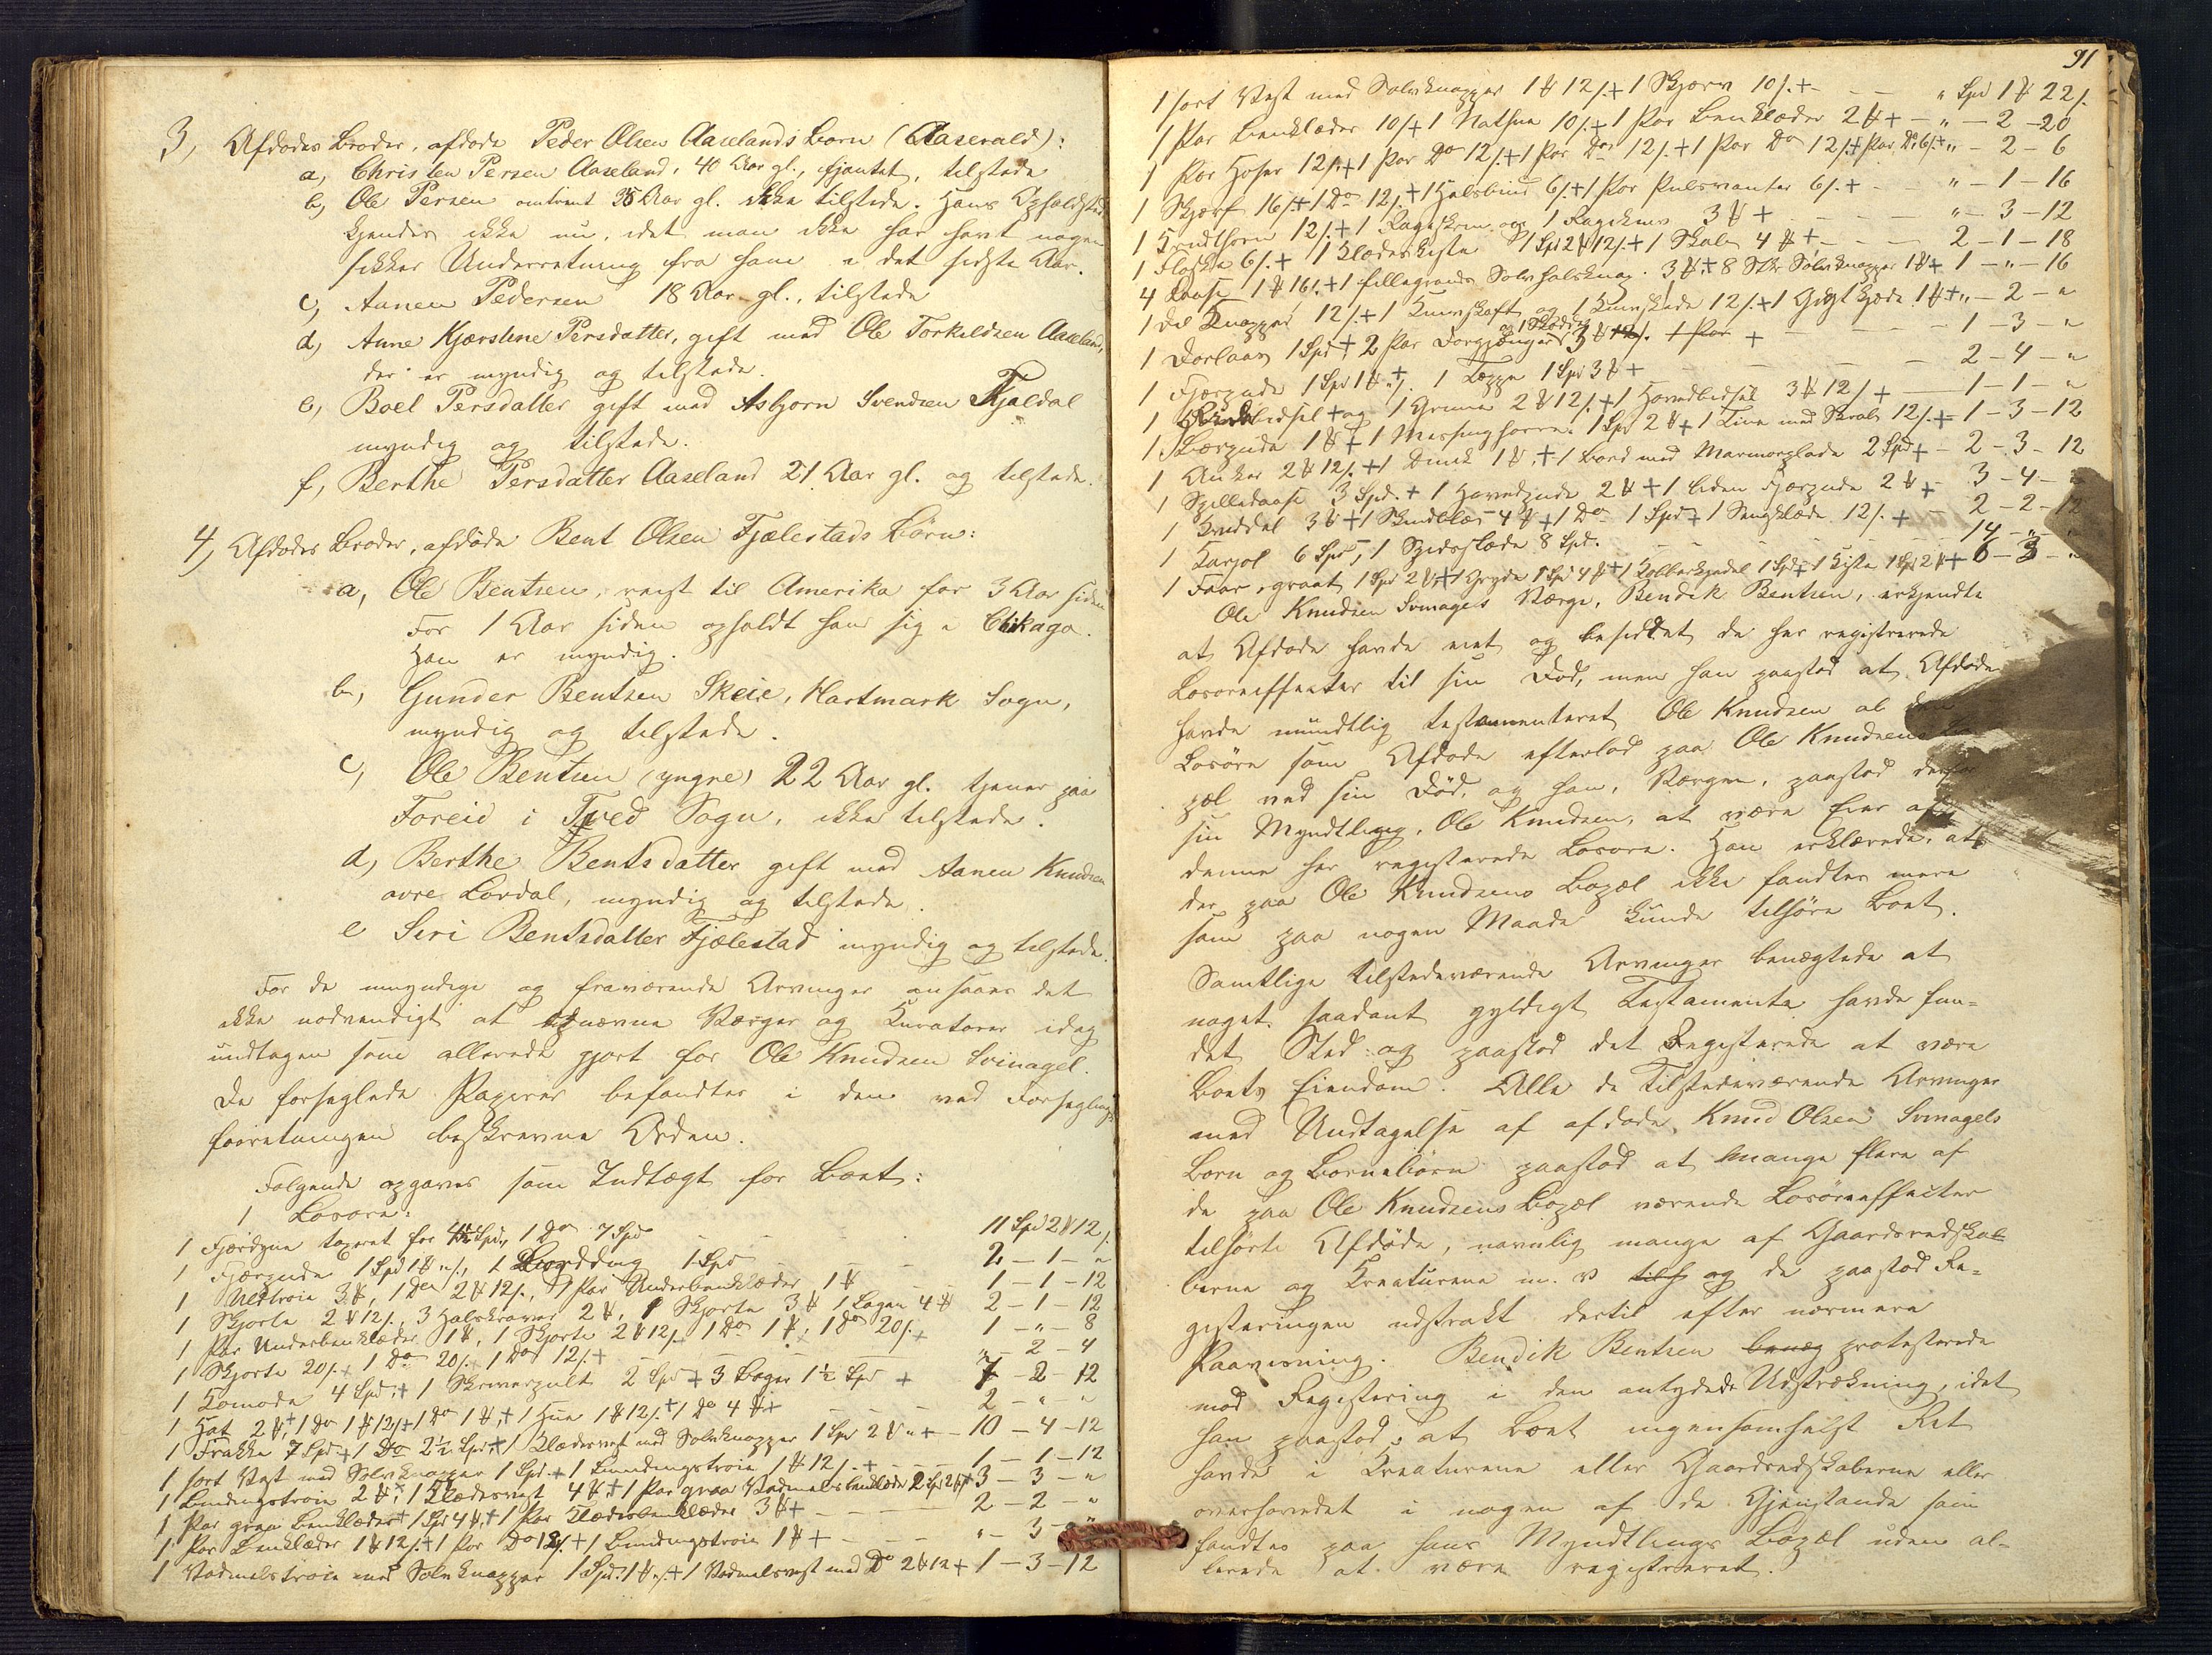 3, Afdødes Broder, afdøde Peder Olsen Aaselands Børn (Aaserald):
a, Christen Persen Aaseland, 40 Aar gl., tilstede
b, Ole Persen omtrent 35 Aar gl. ikke tilstede. Hans Opholdssted
kjendes ikke nu, idet man ikke har havt nogen
sikker Underretning fra ham i det sidste Aar.
c, Aanen Pedersen 18 Aar gl., tilstede
d, Anne Kjerstine Persdatter, gift med Ole Torkildsen Aaseland,
der er myndig og tilstede.
e, Boel Persdatter gift med Asbjørn Svendsen Kjøldal
myndig og tilstede.
f, Berthe Persdatter Aaseland 21 Aar gl. og tilstede.
4, Afdødes Broder, afdøde Bent Olsen Fjælestads Børn:
a, Ole Bentsen, reist til Amerika for 3 Aar siden
For 1 Aar siden opholdt han sig i Chikago.
Han er myndig.
b, Gunder Bentsen Skeie, Hartmark Sogn,
myndig og tilstede.
c, Ole Bentsen (yngre) 22 Aar gl. tjener paa
Foreid i Tved Sogn, ikke tilstede.
d, Berthe Bentsdatter gift med Aanen Knudsen
øvre Lørdal, myndig og tilstede.
e Siri Bentsdatter Fjælestad myndig og tilstede.
For de umyndige og fraværende Arvinger ansaaes det
ikke nødvendigt at opnævne Værger og Kuratorer idag
undtagen som allerede gjort for Ole Knudsen Svinagel.
De forseglede Papirer befandtes i den ved Forseglings
forretningen beskrevne Orden.
Følgende opgaves som Indtægt for Boet:
1 Løsøre:
1 Fjærdyne taxeret for 4½ Spd, 1 Do 7 Spd 11 Spd 2 12
1 Fjærpude 1 Spd 1 , 1 1 Spd 2 – 1 – "
1 Uldtrøie 3 , 1 Do 2 12, 1 Par Underbenklæder 1 1 – 1 – 12
1 Skjorte 2 12, 3 Halskraver 2 , 1 Skjorte 3 1 Lagen 4 2 – 1 – 12
1 Par Underbenklæder 1 , 1 Skjorte 2 12 1 Do 1 , 1 Do 20 + 1 – " – 8
1 Skjorte 20 + 1 Do 20 + 1 Do 12 + " – 2 – 4
1 Komode 4 Spd + 1 Skriverpult 2 Spd + 3 Bøger 1½ Spd + 7 – 2 – 12
1 Hat 2 + 1 Do 1 12 + 1 Do 1 + 1 Hue 1 12 + 1 Do 4 + 2 – " "
1 Frakke 7 Spd + 1 Do 2½ Spd + 1 Klædesvest med Sølvknapper 1 Spd 2 " + 10 – 4 – 12
1 sort Vest med Sølvknapper 1 Spd + 1 Bundingstrøie 1 12 + 1 – 1 – 12
1 Bundingstrøie 2 + 1 Klædesvest 4 + 1 Par graa Vadmelsbenklæder 2 Spd 2 + 3 – 3 – "
1 Par graa Benklæder + 1 Spd 4 + 1 Par Klædesbenklæder 3 + 2 – 2 – "
1 Par Benklæder 1 12 + 1 Par Do 12 + 1 Bundingstrøie 1 + " – 3 – "
1 Vadmelstrøie med Sølvknapper 1 Spd 1 + 1 Vadmelsvest med Do 2 12 + 1 – 3 – 12
91
1 sort Vest med Sølvknapper 1 12 + 1 Skjærv 10 + " Spd 1 22
1 Par Benklæder 10 + 1 Nathue 10 + 1 Par Benklæder 2 + " – 2 – 20
1 Par Hoser 12 + 1 Par Do 12 + 1 Par Do 12 + 1 Par Do 12 + Par Do 6 + " – 2 – 6
1 Skjærf 16 + 1 Do 12 + 1 Halsbind 6 + 1 Par Pulsvanter 6 + " – 1 – 16
1 Krudthorn 12 + 1 og 1 Ragekniv 3 + " – 3 – 12
1 Flaske 6 + 1 Klædeskiste 1 Spd 2 12 + 1 4 + 2 – 1 – 18
4 1 16 + 1 fillegrands Sølvhalsknap 3 + 8 Stkr Sølvknapper 1 + 1 – " – 16
1 Del Knapper 12 + 1 og 1 12 + 1 1 + " – 2 – "
1 Dørlaas 1 Spd + 2 Par 3 1 Par + 1 – 3 – "
1 Fjærpude 1 Spd 1 + 1 Tæppe 1 Spd 3 + 2 – 4 – "
1 + og 1 Grime 2 12 + 1 Hovedbidsel 3 12 + 1 – 1 – "
1 Lærpude 1 + 1 Messinghorn 1 Spd 2 + 1 Tine med 12 + 1 – 3 – 12
1 Anker 2 12 + 1 Dunk 1 + 1 Bord med Marmorplade 2 Spd + 2 – 3 – 12
1 Spilledaase 3 Spd + 1 Hovedpude 2 + 1 liden Fjærpude 2 + 3 – 4 – "
1 3 + 1 4 + 1 Do 1 Spd + 1 Sengklæde 12 + 2 – 2 – 12
1 Karjol 6 Spd, 1 Spidsslæde 8 Spd. 14 – " – "
1 Faar, graat 1 Spd 2 + 1 Gryde 1 Spd 4 + 1 Kobberkjedel 1 Spd + 1 Kiste 1 Spd 2 + 6 – 3 – "
Ole Knudsen Svinagels Værge, Bendik Bentsen, erkjendte
at Afdøde havde eiet og besiddet de her registrerede
Løsøreeffecter til sin Død, men han paastod at Afdøde
havde mundtlig testamenteret Ole Knudsen al den
Løsøre som Afdøde efterlod paa Ole Knudsens
pæl ved sin Død, og han, Værgen, paastod derfor
sin Myndtling, Ole Knudsen, at være Eier af
denne her registerede Løsøre. Han erklærede, at
der paa Ole Knudsens Bopæl ikke fandtes mere
som paa nogen Maade kunde tilhøre Boet.
Samtlige tilstedeværende Arvinger benægtede at
noget saadant gyldigt Testamente havde fun-
det Sted og paastod det Registerede at være
Boets Eiendom. Alle de Tilstedeværende Arvinger
med Undtagelse af afdøde Knud Olsen Svinagels
Børn og Børnebørn paastod at mange flere af
de paa Ole Knudsens Bopæl værende Løsøreeffecter
tilhørte Afdøde, navnlig mange af Gaardsredska-
berne og Kreaturene m. v. og de paastod Re-
gisteringen udstrakt dertil efter nærmere
Paavisning. Bendik Bentsen benæg protesterede
mod Registering i den antydede Udstrækning, idet
han paastod, at Boet ingensomhelst Ret
havde i Kreaturene eller Gaardredskaberne eller
overhovedet i nogen af de Gjenstande som
fandtes paa hans Myndtlings Bopæl uden al-
lerede at være registreret.